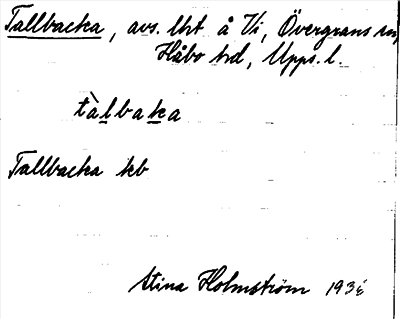 Tallbacka, avs. lht å Vi, Övergrans sn,
Håbo hd, Upps. l.
tàlbaka
Tallbacka kb
Stina Holmström 1936